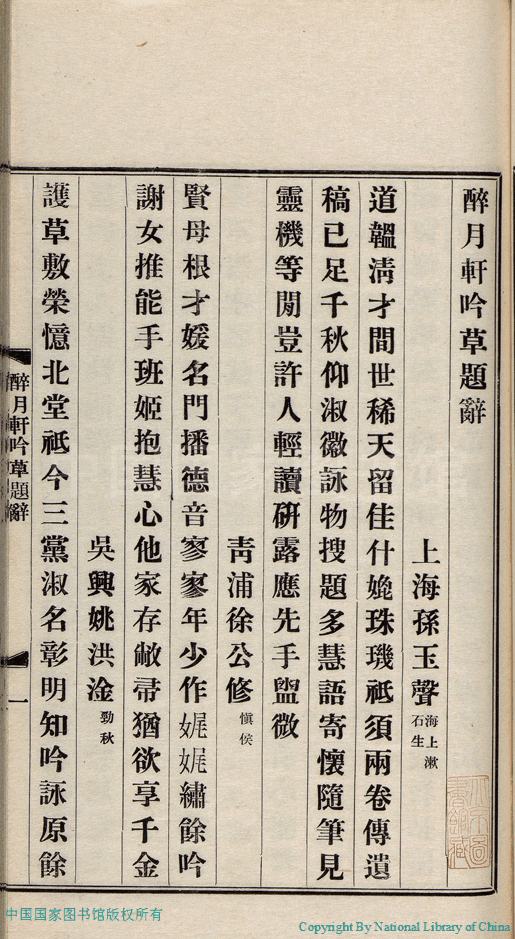 醉月軒吟草題辭
上海孫玉聲海上漱石生
道韞淸才間世稀天留佳什媲珠璣祗須兩卷傳遺
稿已足千秋仰淑徽詠物搜題多慧語寄懷隨筆見
靈機等閒豈許人輕讀硏露應先手盥微
靑浦徐公修愼侯
賢母根才媛名門播德音寥寥年少作娓娓繡餘吟
謝女推能手班姬抱慧心他家存敝帚猶欲享千金
吳興姚洪淦勁秋
護草敷榮憶北堂祗今三黨淑名彰明知吟詠原餘
醉月軒吟草題辭
一
中国国家图书馆版权所有
Copyright By National Library of China